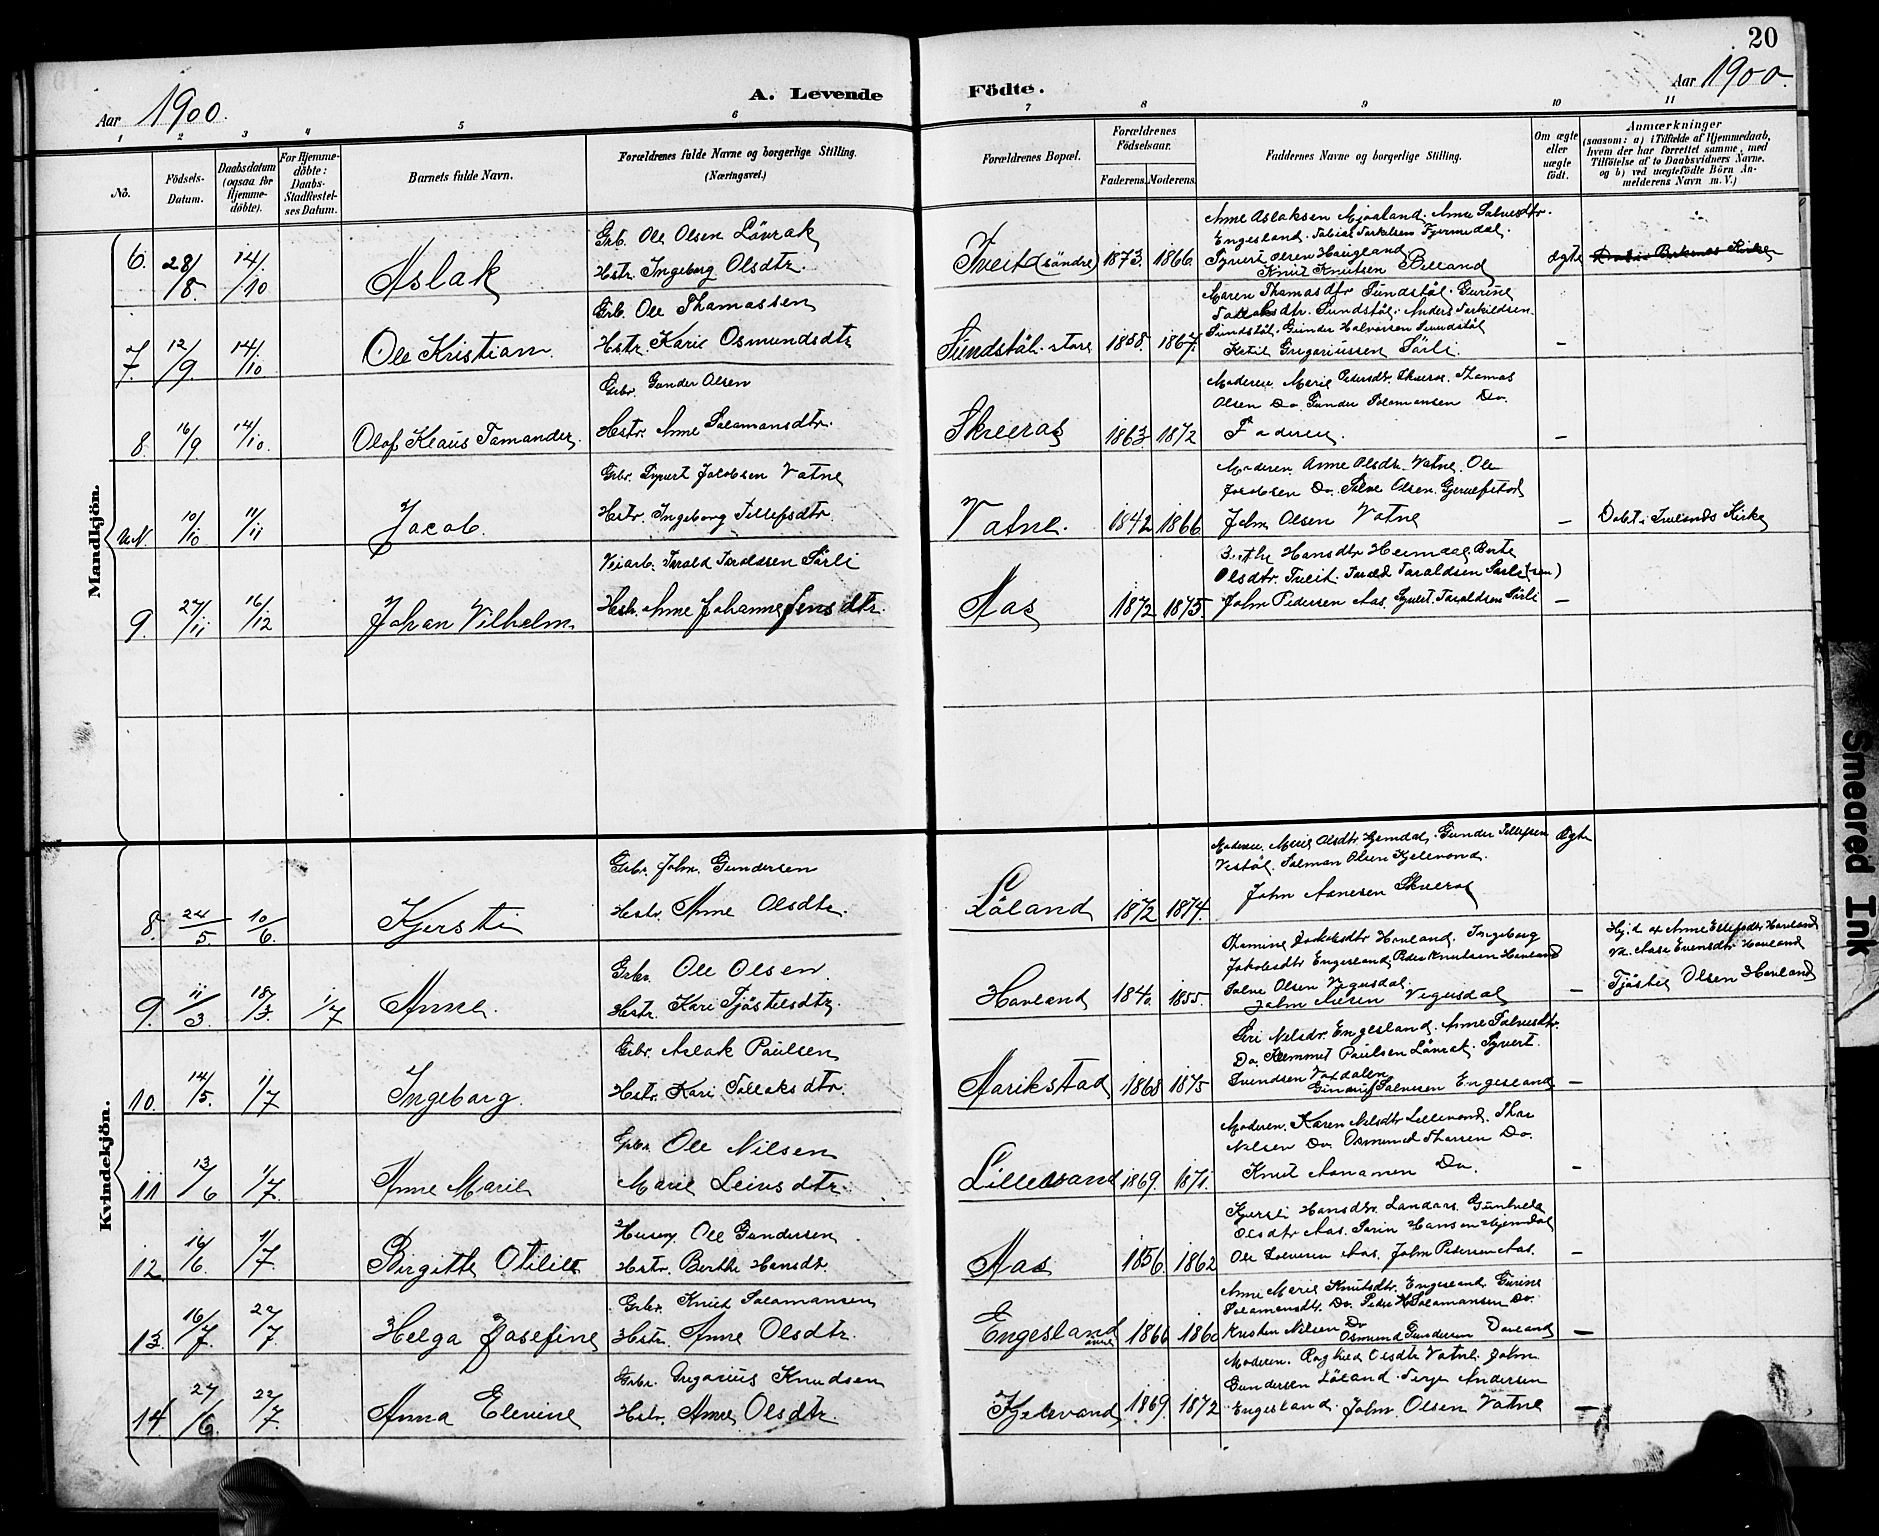 20
Aar 1900.
A. Levende
Födte.
Aar 1900.
1 2 3 4 5 6 7 8 9 10 11
No.
Födsels-Datum.
Daabsdatum (ogsaa for Hjemme-döbte).
For Hjemme-döbte: Daabs-Stadfæstel-ses Datum.
Barnets fulde Navn.
Forældrenes fulde Navne og borgerlige Stilling.
(Næringsvei.)
Forældrenes Bopæl.
Forældrenes Födselsaar.
Faderens. Moderens.
Faddernes Navne og borgerlige Stilling.
Om ægte eller uægte födt.
Anmærkninger
(saasom: a) i Tilfælde af Hjemmedaab, hvem der har forrettet samme, med Tilföielse af to Daabsvidners Navne. og b) ved uægtefödte Börn An-melderens Navn m. V.)
Mandkjön.
6. 28/8. 14/10 Aslak
Grb. Ole Olsen Lövrak
Hstr. Ingeborg Olsdtr.
Tveit (söndre) 1873. 1866.
Anne Aslaksen Mjaaland. Anne Salvesdtr.
Engesland. Tobias Terkelsen Tjermedal.
Syvert Olsen Haugland
Knut Knutsen Billand
ægte
7. 12/9. 14/10 Ole Kristian
Grb. Ole Thomassen
Hstr. Karie Osmundsdtr
Sundstöl store 1858. 1867.
Maren Thomasdtr Sundstöl. Gurine
Sundstöl. Anders Terkildsen
Sundstöl. Gunder Halvorsen Sundstöl
Ketil Gregoriussen Sörli.
—
8. 16/9 14/10. Olaf Klaus Tamander.
Grbr. Gunder Olsen
Hstr. Anne Salamonsdtr.
Skreeraas 1863 1872
Moderen. Marie Pedersdtr. Skreeros. Thomas
Olsen Do. Gunder Salamonsen Do.
Faderen.
—
U.N. 10/10 11/11 Jacob.
Grbr. Syvert Jacobsen Vatne
Hstr. Ingeborg Tellefsdtr.
Vatne. 1842 1866
Moderen. Anne Olsdtr. Vatne. Ole
Jacobsen Do. Salve Olsen.
John Olsen Vatne
— Döbt i Ivelands Kirke
9. 27/11 16/12 Johan Vilhelm
Veiarb. Tarald Taraldsen Sörli
Hstr. Anne Johanne Jensdtr.
Aas 1872 1875.
Hansdtr Heimdal Berte
Olsdtr. Tveit. Tarald Taraldsen Sörli (sen)
John Pedersen Aas. Syvert. Taraldsen Sörli
—
Kvindekjön.
8. 24/5. 10/6. Kjersti
Grbr. John Gundersen
Hstr. Anne Olsdtr.
Löland 1872 1874.
Moderen. Marie Olsdtr Hjemdal. Gunder Tellefsen
Vestöl. Salman Olsen Kjelevand.
John Aanesen Skreros
Ægte
9. 11/3. 18/3. 1/7 Anne.
Grbr. Ole Olsen.
Hstr. Kari Tjöstelsdtr.
Hovland 1840 1855.
Thomine Jakobsdtr Hovland. Ingeborg
Jakobsdtr Engesland. Peder Knutsen Hovland
Salve Olsen Vegusdal
John Vegusdal
—
Hj.d. af Anne Hovland
Vd. Aase Evensdtr Hovland
Tjöstel Olsen Hovland
10. 14/5. 1/7 Ingeborg.
Grbr. Aslak Paulsen
Hstr. Kari Tellaksdtr.
Marikstad 1868 1875
Siri Nelsdr. Engesland. Anne Salvesdtr.
Do. Klemmet Paulsen Lövrak. Syvert.
Svendsen Vatdalen
Salvesen Engesland
—
11 13/6 1/7. Anne Marie
Grbr. Ole Nilsen
Marie Leivsdtr.
Lillevand 1869. 1871.
Moderen. Karen Nelsdtr Lillevand. Thor
Nelsen Do. Osmund Thorsen Do.
Knut Aanansen Do.
—
12 16/6. 1/7. Birgitte Otilie
Husmy. Ole Gundersen
Hstr. Berthe Hansdtr
Aas 1856. 1862
Kjersti Hansdtr. Landaas. Gunhild
Olsdtr Aas. Sörin Hansen Hjemdal
Ole Aas. John Pedersen Aas.
—
13. 16/7. 22/7. Helga Josefine
Grbr. Knud Salamonsen
Hstr. Anne Olsdtr.
Engesland 1866 1860
Anne Marie Knutsdtr. Engesland. Gurine
Salamonsdtr. Do. Peder H Salamonsen Do.
Kristen Nilsen Do
Osmund Gundersen Dovland
—
14 27/6. 22/7. Anna Elevine
Grbr. Gregorius Knudsen
Hstr. Anne Olsdtr
Kjelevand 1869. 1872
Moderen. Raghild Olsdtr Vatne. John
Gundersen Löland. Terje Andersen
Engesland. John Olsen Vatne
—
Smeared Ink